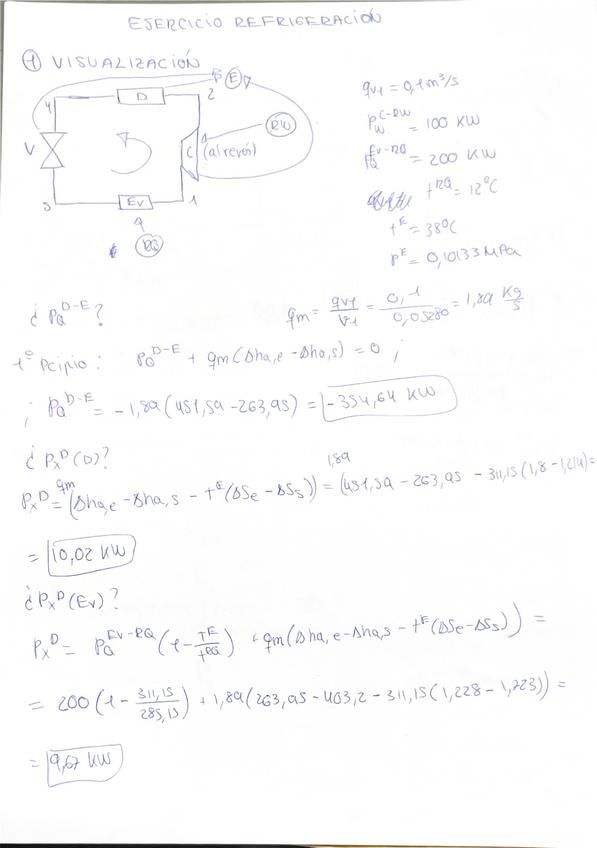 EJERCICIO REFRIGERACIÓN
① VISUALIZACIÓN
4 D 2 E
RW
V C (al revés)
5 Ev 1
RQ
qv1 = 0,1 m³/s
Pw^C-RW = 100 KW
PQ^Ev-RQ = 200 KW
t^RQ = 12°C
t^E = 38°C
P^E = 0,10133 MPa
¿ PQ^D-E ?
qm = qv1/V1 = 0,1/0,05280 = 1,89 Kg/s
1º Pcipio : PQ^D-E + qm (Δha,e - Δha,s) = 0 ;
; PQ^D-E = - 1,89 (451,59 - 263,95) = - 354,64 KW
¿ Px^D (D) ?
Px^D = qm (Δha,e - Δha,s - t^E (ΔSe - ΔSs)) = 1,89 (451,59 - 263,95 - 311,15 (1,8 - 1,214) =
= 10,02 KW
¿ Px^D (Ev) ?
Px^D = PQ^Ev-RQ (1 - T^E/t^RQ) + qm (Δha,e - Δha,s - t^E (ΔSe - ΔSs)) =
= 200 (1 - 311,15/285,15) + 1,89 (263,95 - 403,2 - 311,15 (1,228 - 1,723)) =
= 9,67 KW